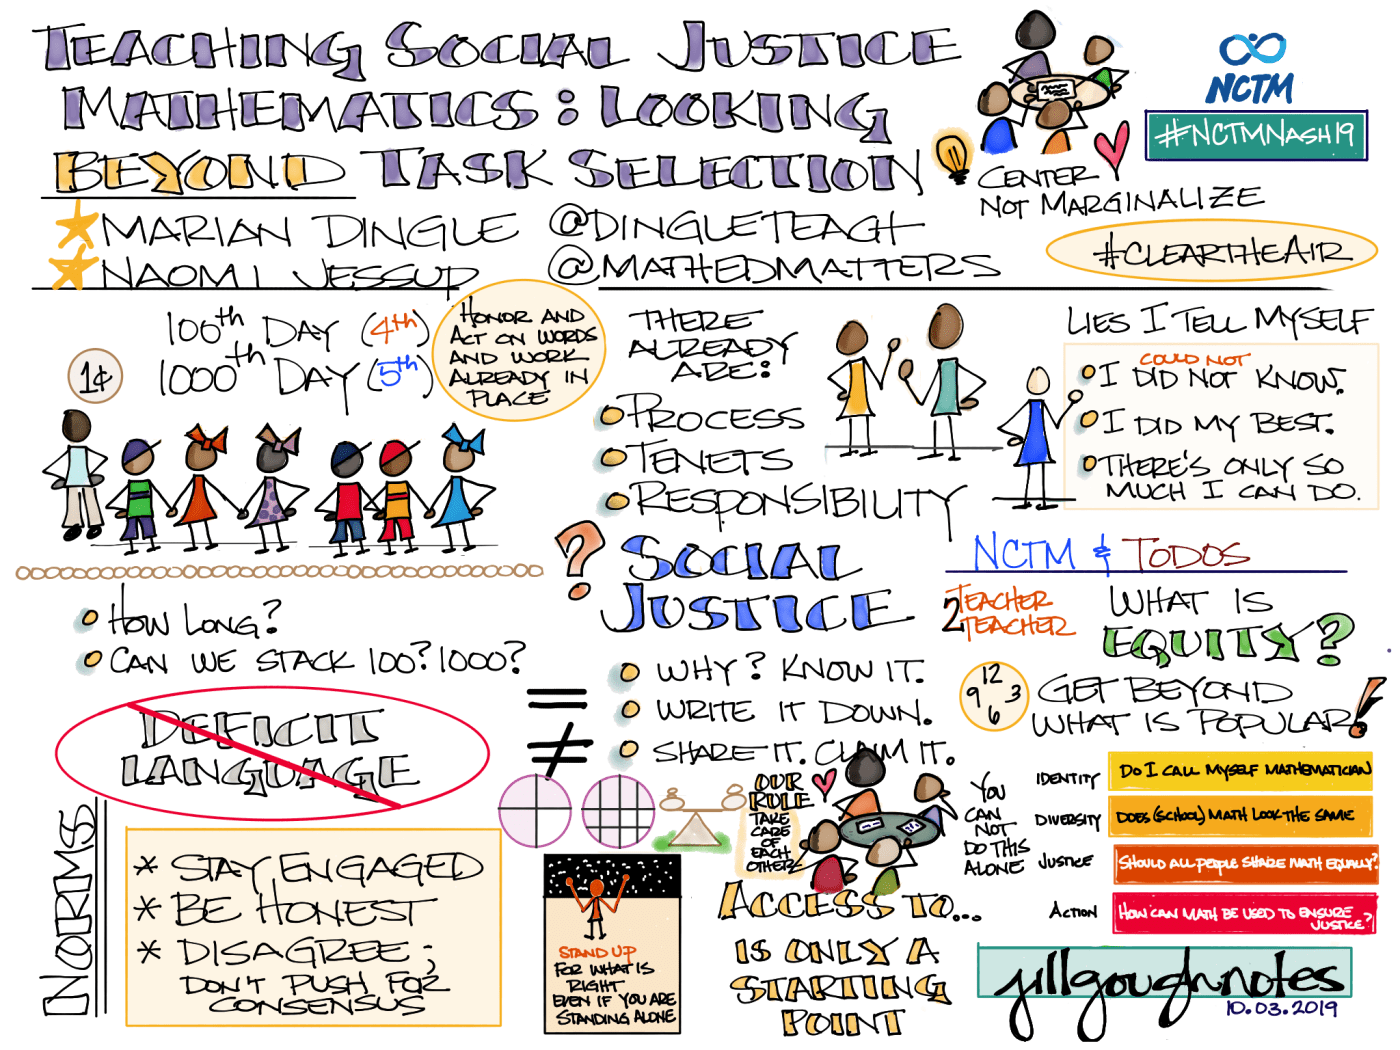 TEACHING SOCIAL JUSTICE
MATHEMATICS: LOOKING
BEYOND TASK SELECTION
MARIAN DINGLE @DINGLETEACH
NAOMI JESSUP @MATHEDMATTERS
CENTER
NOT MARGINALIZE
NCTM
#NCTMNASH19
#CLEARTHEAIR
100th DAY (4th)
1000th DAY (5th)
1¢
HONOR AND
ACT ON WORDS
AND WORK
ALREADY IN
PLACE
THERE
ALREADY
ARE:
PROCESS
TENETS
RESPONSIBILITY
LIES I TELL MYSELF
COULD NOT
I DID NOT KNOW.
I DID MY BEST.
THERE'S ONLY SO
MUCH I CAN DO.
HOW LONG?
CAN WE STACK 100? 1000?
? SOCIAL
JUSTICE
WHY? KNOW IT.
WRITE IT DOWN.
SHARE IT. CLAIM IT.
NCTM & TODOS
TEACHER
2 TEACHER
WHAT IS
EQUITY?
12
9 3
6
GET BEYOND
WHAT IS POPULAR!
DEFICIT
LANGUAGE
=
≠
NORMS
* STAY ENGAGED
* BE HONEST
* DISAGREE;
DON'T PUSH FOR
CONSENSUS
STAND UP
FOR WHAT IS
RIGHT
EVEN IF YOU ARE
STANDING ALONE
OUR
RULE
TAKE
CARE
OF
EACH
OTHER
ACCESS TO...
IS ONLY A
STARTING
POINT
YOU
CAN
NOT
DO THIS
ALONE
IDENTITY DO I CALL MYSELF MATHEMATICIAN
DIVERSITY DOES (SCHOOL) MATH LOOK THE SAME
JUSTICE SHOULD ALL PEOPLE SHARE MATH EQUALLY?
ACTION HOW CAN MATH BE USED TO ENSURE
JUSTICE?
jillgoughnotes
10.03.2019